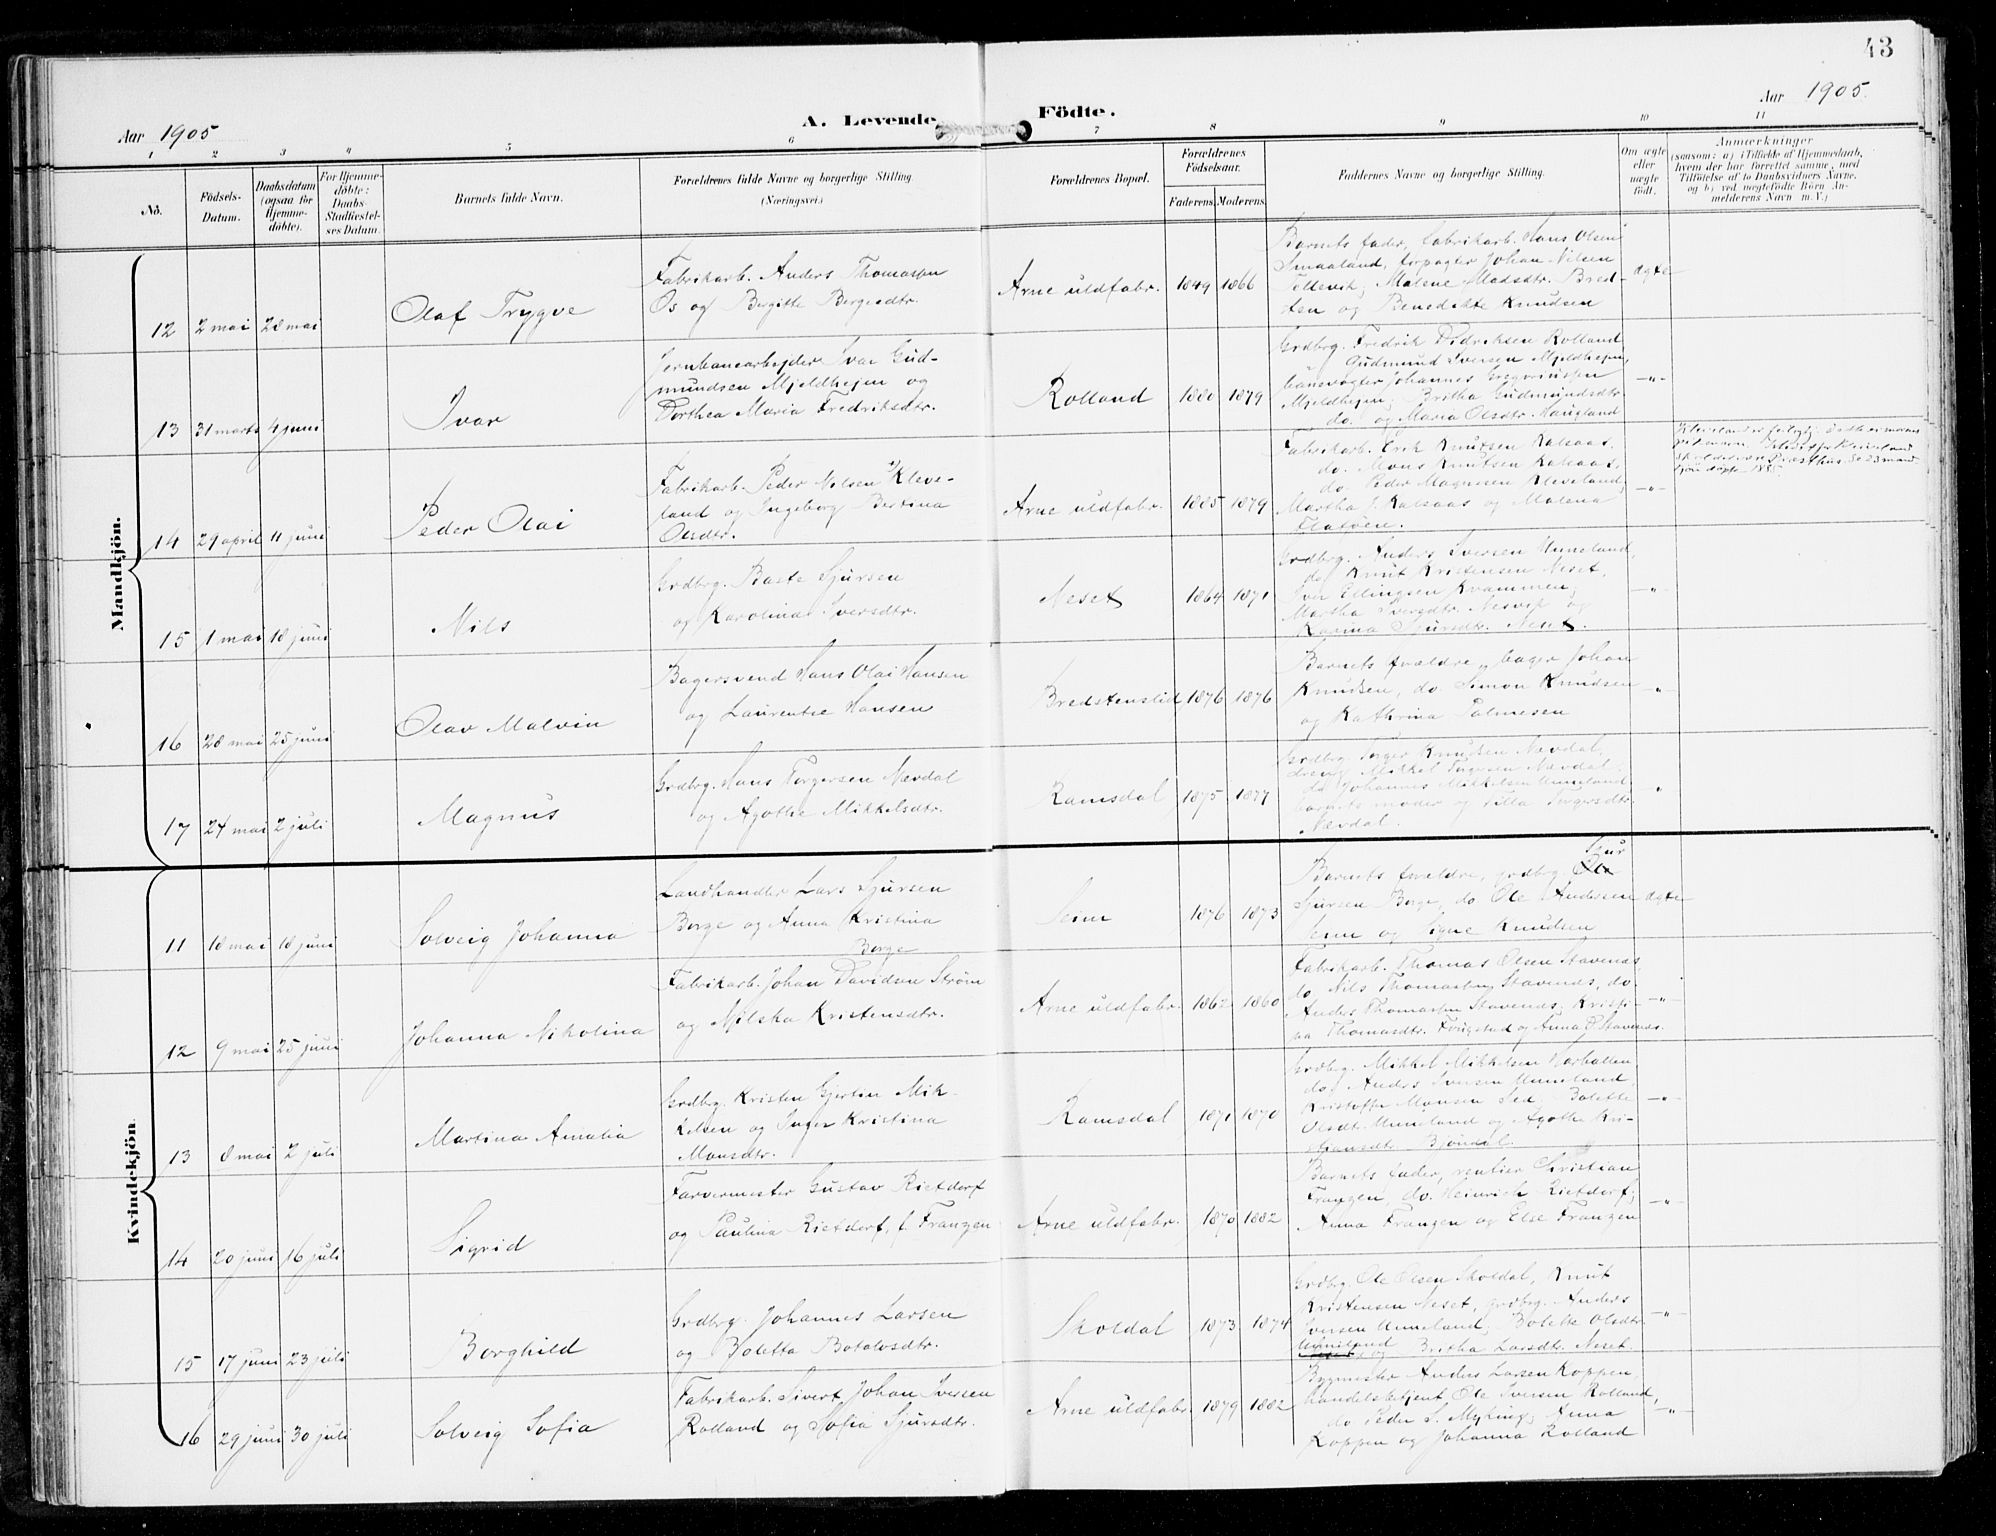 43
Aar 1905
A. Levende Födte.
Aar 1905.
1 2 3 4 5 6 7 8 9 10 11
No.
Födsels-
Datum.
Daabsdatum
(ogsaa for
Hjemme-
döbte).
For Hjemme-
döbte:
Daabs-
Stadfæstel-
ses Datum.
Barnets fulde Navn.
Forældrenes fulde Navne og borgerlige Stilling.
(Næringsvei.)
Forældrenes Bopæl.
Forældrenes
Födselsaar.
Faderens. Moderens.
Faddernes Navne og borgerlige Stilling.
Om ægte
eller
uægte
födt.
Anmærkninger
(saasom: a) i Tilfælde af Hjemmedaab,
hvem der har forrettet samme, med
Tilföielse af to Daabsvidners Navne,
og b) ved uægtefödte Börn An-
melderens Navn m. V.)
Mandkjön.
12 2 mai 28 mai
Olaf Trygve
Fabrikarb. Anders Thomassen
Os og Bergithe Bergesdtr.
Arne uldfabr. 1849 1866
Barnets fader, fabrikarb. Hans Olsen
Smaaland, forpagter Johan Nilsen
Tellevik, Malene Madsdtr. Bred-
sten og Benedikte Knudsen
ægte
13 31 marts 4 juni
Ivar
Jernbanearbejder Ivar Gud-
mundsen Mjeldhejen og
Dorthea Maria Fredriksdtr.
Rolland 1880 1879
Grdbrg. Fredrik Didriksen Rolland
Gudmund Iversen Mjeldhejen,
banevogter Johannes Gregoriussen
Mjeldhejen, Britha Gudmundsdtr.
do. og Maria Olsdtr. Haugland
—"—
14 29 april 11 juni
Peder Olai
Fabrikarb. Peder Nilsen Kleve-
land og Ingeborg Bertina
Olsdtr.
Arne uldfabr. 1885 1879
Fabrikarb. Erik Knutsen Kalsaas,
do. Mons Knutsen Kalsaas,
do. Peder Magnesen Kleveland,
Martha J. Kalsaas og Malena
Flatöen.
—"—
15 1 mai 18 juni
Nils
Grdbrg. Baste Sjursen
og Karolina Iversdtr.
Neset 1864 1871
Grdbrg. Anders Iversen Unneland,
do. Knut Kristensen Neset,
Iver Ellingsen Kvammen,
Martha Iversdtr. Nesvik og
Karina Sjursdtr. Neset.
—"—
16 28 mai 25 juni
Olav Malvin
Bagersvend Hans Olai Hansen
og Laurentse Hansen
Bredstenslid 1876 1876
Barnets forældre, bager Johan
Knudsen, do. Simon Knudsen
og Kathrina Palmesen
—"—
17 24 mai 2 juli
Magnus
Grdbrg. Hans Torgersen Nævdal
og Agothe Mikkelsdtr.
Ramsdal 1875 1877
Grdbrg. Torger Knudsen Nævdal,
Mikkel Torgersen Nævdal,
do. Johannes Mikkelsen Unneland
barnets moder og Torgersdtr.
Nævdal.
"
Kvindekjön.
11 18 mai 18 juni
Solveig Johanna
Landhandler Lars Sjursen
Borge og Anna Kristina
Borge
Seim 1876 1873
Sjur
Barnets forældre, grdbrg. Ole
Sjursen Borge, do Ole Andersen
Seim og Signe Knudsen
ægte
12 9 mai 25 juni
Johanna Nikolina
Fabrikarb. Johan Davidsen Ström
og Milska Kristensdtr.
Arne uldfabr. 1862 1860
Fabrikarb. Thomas Olsen Stavenes,
do. Nils Thomassen Stavenes, do.
Anders Thomassen Stavenes, Kristi-
na Thomasdtr. og Anna P. Stavenes.
—"—
13 8 mai 2 juli
Martina Amalia
Grdbrg. Kristen Gjertin Mik-
kelsen og Inger Kristina
Monsdtr.
Ramsdal 1871 1870
Grdbrg. Mikkel Mikkelsen
do. Anders Iversen Unneland
Kristoffer Monsen Sed. Bolette
Olsdt. Unneland og Agothe Kri-
stiansdtr. Bjöndal.
—"—
14 20 juni 16 juli
Sigrid
Farvermester Gustav Rietdorf
og Paulina Rietdorf, f. Franzen
Arne uldfabr. 1870 1882
Barnets fader, rentier Christian
Franzen, do. Heinrich Rietdorf,
Anna Franzen og Else Franzen
—"—
15 17 juni 23 juli
Borghild
Grdbrg. Johannes Larsen
og Boletta Botolvsdtr.
Skoldal 1873 1874
Grdbrg. Ole Olsen Skoldal, Knut
Kristensen Neset, grdbrg. Anders
Iversen Unneland, Bolette Olsdtr.
Unneland og Britha Larsdtr. Neset.
—"—
16 29 juni 30 juli
Solveig Sofia
Fabrikarb. Sivert Johan Iversen
Rolland og Sofia Sjursdtr.
Arne uldfabr. 1879 1882
Bygmester Anders Larsen Koppen,
Handelsbetjent Ole Iversen Rolland,
do Peder S. Myking, Anna
Koppen og Johanna Rolland
—"—